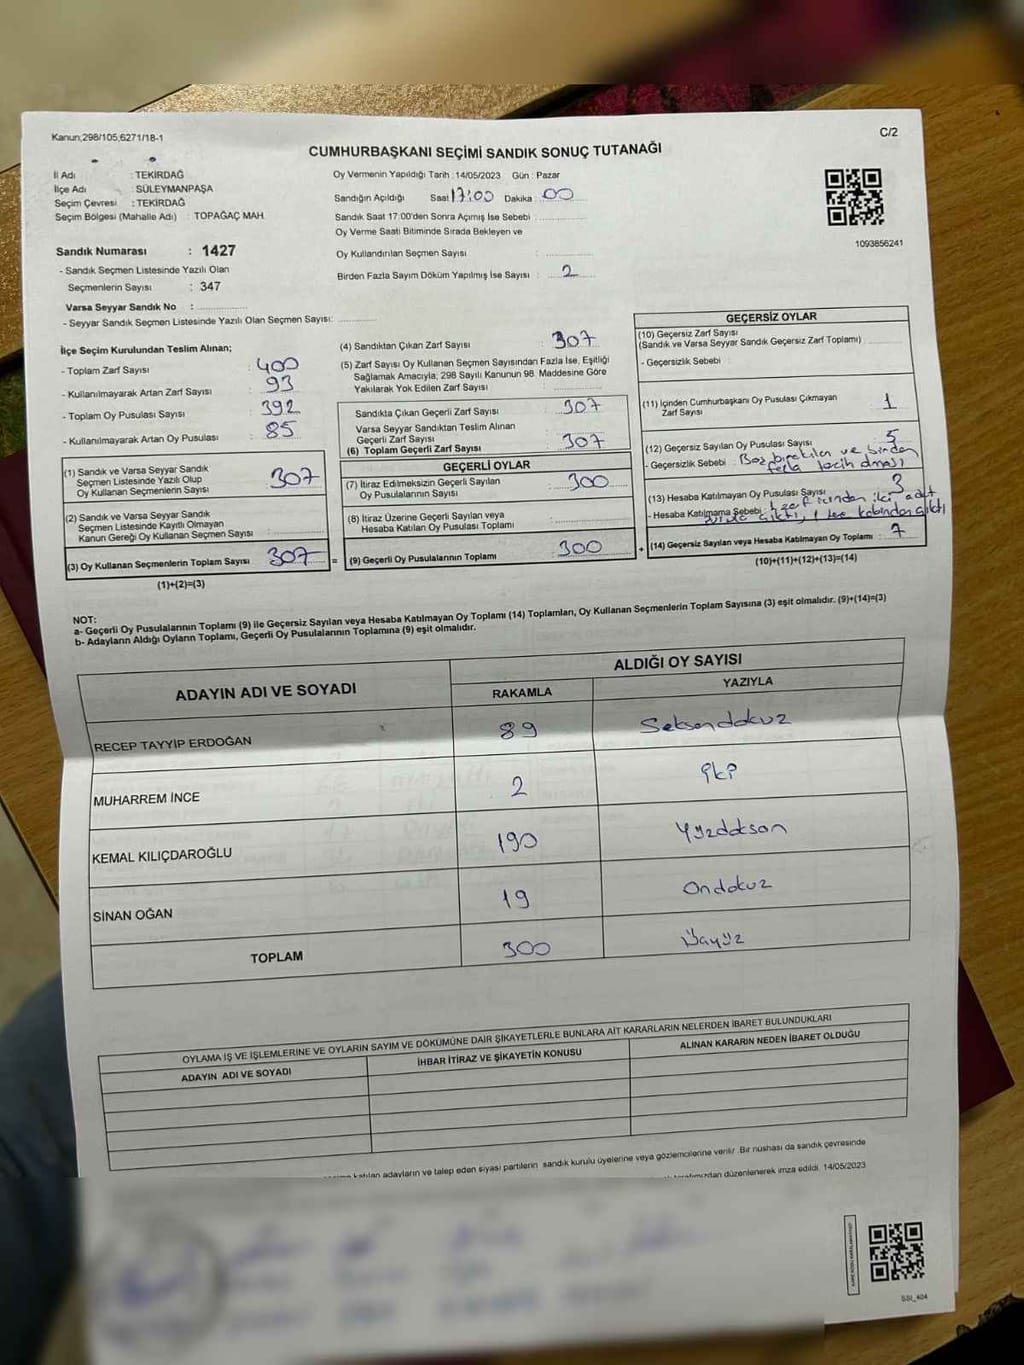 Kanun;298/105;6271/18-1
C/2
CUMHURBAŞKANI SEÇİMİ SANDIK SONUÇ TUTANAĞI
İl Adı : TEKİRDAĞ
İlçe Adı : SÜLEYMANPAŞA
Seçim Çevresi : TEKİRDAĞ
Seçim Bölgesi (Mahalle Adı) : TOPAĞAÇ MAH.
Sandık Numarası : 1427
- Sandık Seçmen Listesinde Yazılı Olan
Seçmenlerin Sayısı : 347
Varsa Seyyar Sandık No :
- Seyyar Sandık Seçmen Listesinde Yazılı Olan Seçmen Sayısı:
Oy Vermenin Yapıldığı Tarih :14/05/2023 Gün : Pazar
Sandığın Açıldığı Saat 17:00 Dakika : 00
Sandık Saat 17:00'den Sonra Açımış İse Sebebi :
Oy Verme Saati Bitiminde Sırada Bekleyen ve
Oy Kullandırılan Seçmen Sayısı :
Birden Fazla Sayım Döküm Yapılmış İse Sayısı : 2
1093856241
İlçe Seçim Kurulundan Teslim Alınan;
- Toplam Zarf Sayısı : 400
- Kullanılmayarak Artan Zarf Sayısı : 93
- Toplam Oy Pusulası Sayısı : 392
- Kullanılmayarak Artan Oy Pusulası : 85
(1) Sandık ve Varsa Seyyar Sandık
Seçmen Listesinde Yazılı Olup
Oy Kullanan Seçmenlerin Sayısı : 307
(2) Sandık ve Varsa Seyyar Sandık
Seçmen Listesinde Kayıtlı Olmayan
Kanun Gereği Oy Kullanan Seçmen Sayısı :
(3) Oy Kullanan Seçmenlerin Toplam Sayısı 307 =
(1)+(2)=(3)
(4) Sandıktan Çıkan Zarf Sayısı : 307
(5) Zarf Sayısı Oy Kullanan Seçmen Sayısından Fazla İse, Eşitliği
Sağlamak Amacıyla; 298 Sayılı Kanunun 98. Maddesine Göre
Yakılarak Yok Edilen Zarf Sayısı :
Sandıkta Çıkan Geçerli Zarf Sayısı : 307
Varsa Seyyar Sandıktan Teslim Alınan
Geçerli Zarf Sayısı :
(6) Toplam Geçerli Zarf Sayısı : 307
GEÇERLİ OYLAR
(7) İtiraz Edilmeksizin Geçerli Sayılan
Oy Pusulalarının Sayısı : 300
(8) İtiraz Üzerine Geçerli Sayılan veya
Hesaba Katılan Oy Pusulası Toplamı :
(9) Geçerli Oy Pusulalarının Toplamı 300 +
GEÇERSİZ OYLAR
(10) Geçersiz Zarf Sayısı
(Sandık ve Varsa Seyyar Sandık Geçersiz Zarf Toplamı) :
- Geçersizlik Sebebi :
(11) İçinden Cumhurbaşkanı Oy Pusulası Çıkmayan
Zarf Sayısı : 1
(12) Geçersiz Sayılan Oy Pusulası Sayısı : 5
- Geçersizlik Sebebi : Boş bırakılan ve birden
fazla tercih olması
(13) Hesaba Katılmayan Oy Pusulası Sayısı : 3
- Hesaba Katılmama Sebebi : 1 zarf içinden iki adet
(14) Geçersiz Sayılan veya Hesaba Katılmayan Oy Toplamı : 7
(10)+(11)+(12)+(13)=(14)
NOT:
a- Geçerli Oy Pusulalarının Toplamı (9) ile Geçersiz Sayılan veya Hesaba Katılmayan Oy Toplamı (14) Toplamları, Oy Kullanan Seçmenlerin Toplam Sayısına (3) eşit olmalıdır. (9)+(14)=(3)
b- Adayların Aldığı Oyların Toplamı, Geçerli Oy Pusulalarının Toplamına (9) eşit olmalıdır.
ADAYIN ADI VE SOYADI ALDIĞI OY SAYISI
RAKAMLA YAZIYLA
RECEP TAYYİP ERDOĞAN 89 Seksendokuz
MUHARREM İNCE 2 İki
KEMAL KILIÇDAROĞLU 190 Yüzdoksan
SİNAN OĞAN 19 Ondokuz
TOPLAM 300 Üçyüz
OYLAMA İŞ VE İŞLEMLERİNE VE OYLARIN SAYIM VE DÖKÜMÜNE DAİR ŞİKAYETLERLE BUNLARA AİT KARARLARIN NELERDEN İBARET BULUNDUKLARI
ADAYIN ADI VE SOYADI İHBAR İTİRAZ VE ŞİKAYETİN KONUSU ALINAN KARARIN NEDEN İBARET OLDUĞU
katılan adayların ve talep eden siyasi partilerin sandık kurulu üyelerine veya gözlemcilerine verilir. Bir nüshası da sandık çevresinde
düzenlenerek imza edildi. 14/05/2023
SSI_404